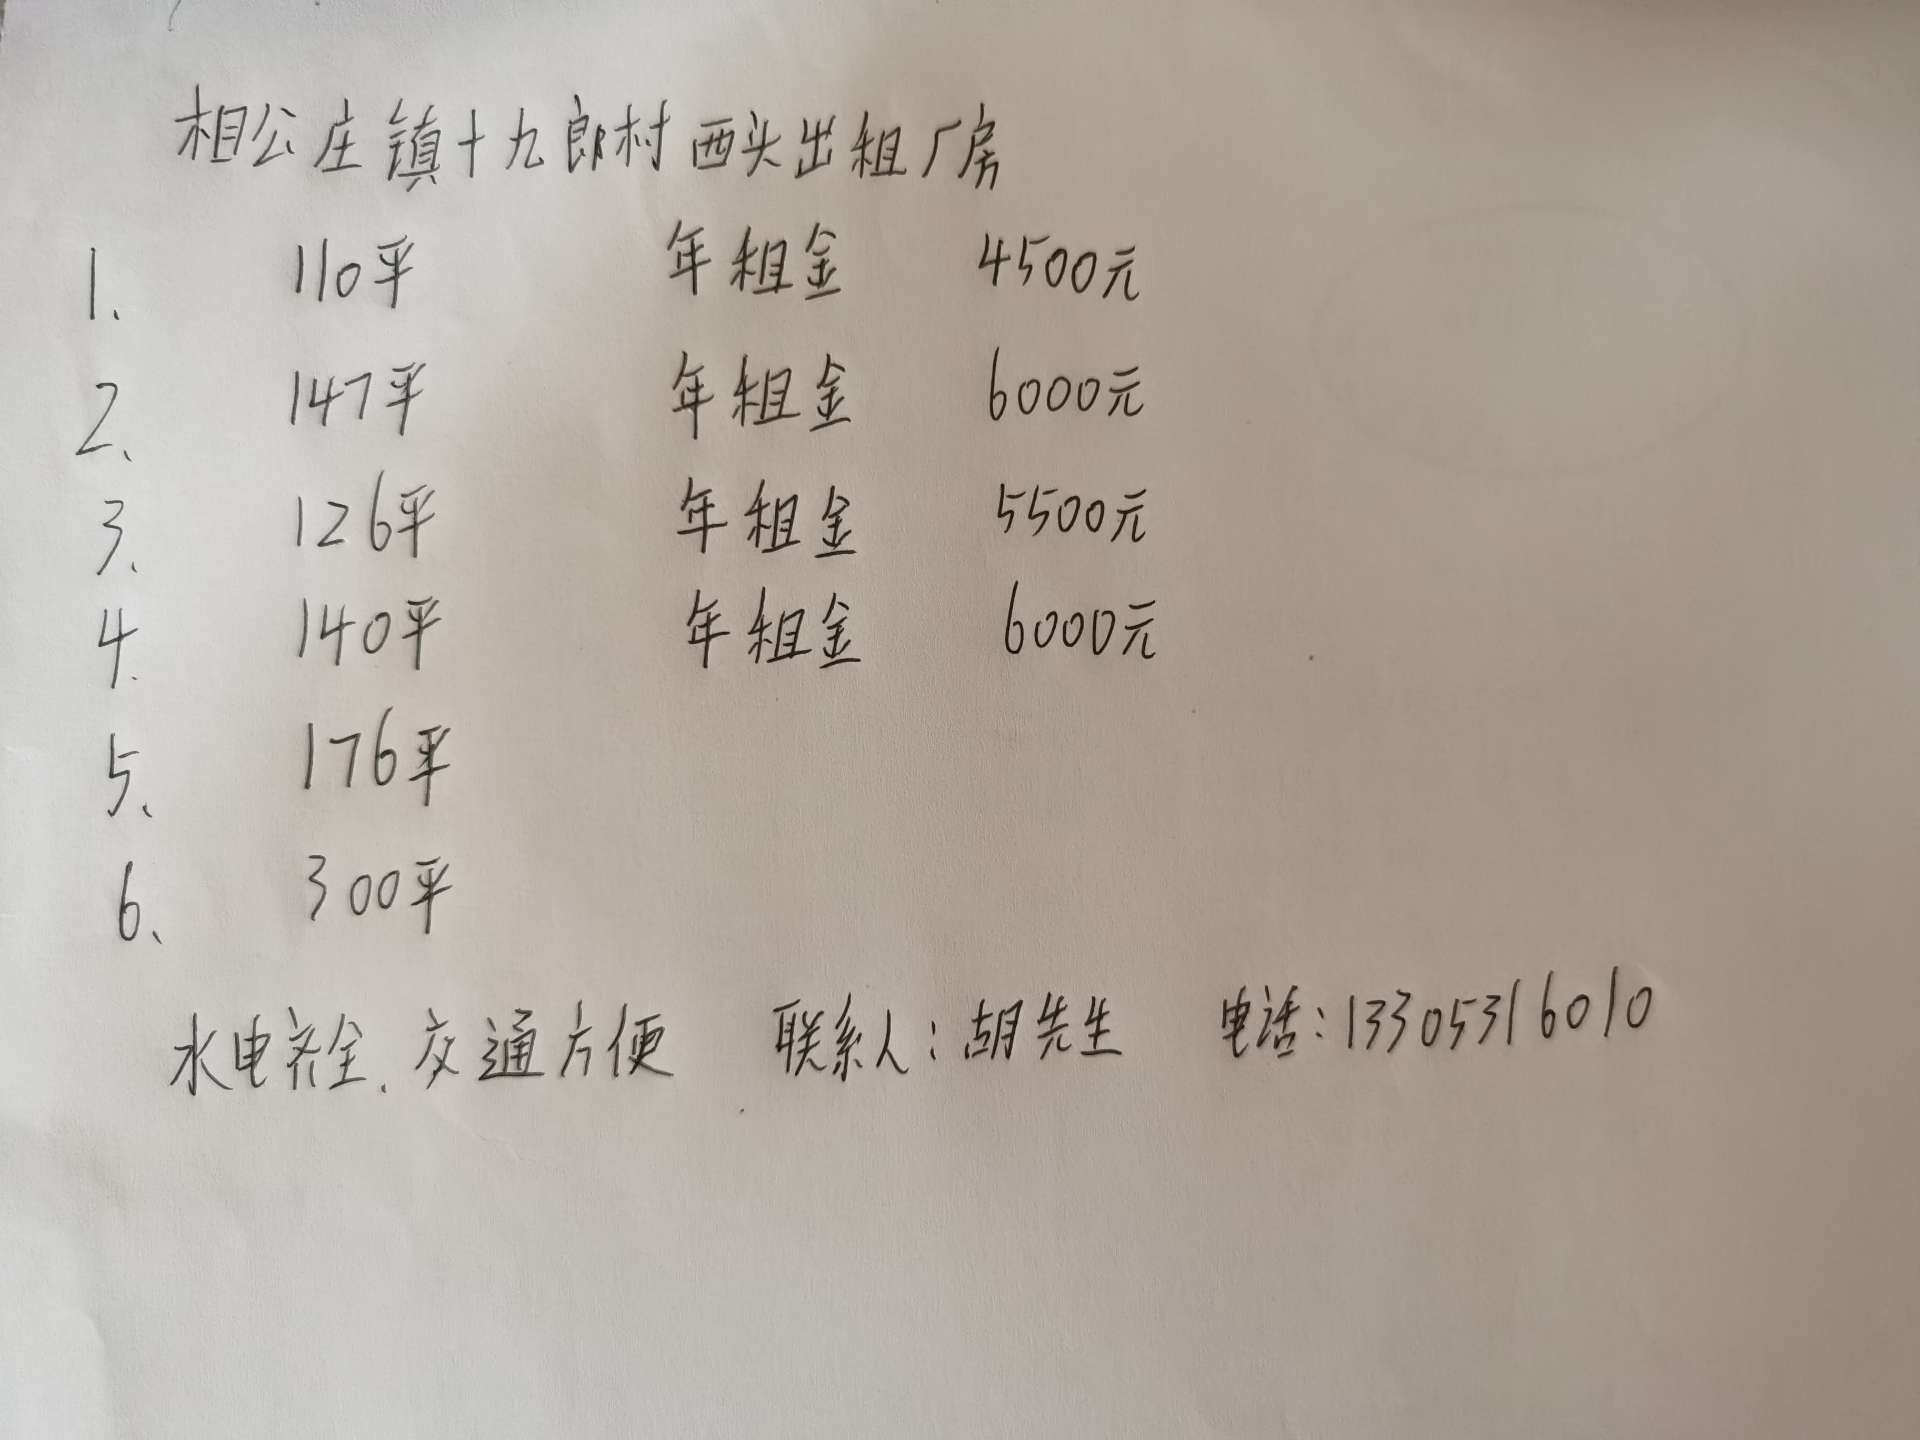 相公庄镇十九郎村西头出租厂房
1、 110平 年租金 4500元
2、 147平 年租金 6000元
3、 126平 年租金 5500元
4. 140平 年租金 6000元
5、 176平
6、 300平
水电齐全.交通方便 联系人:胡先生 电话:13305316010